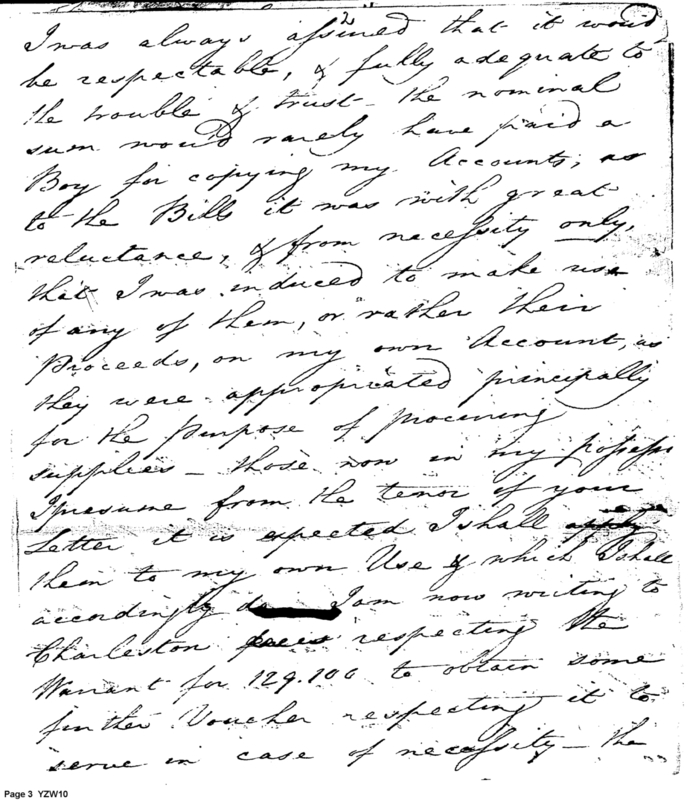 2
I was always assured that it would
be respectable, & fully adequate to
the trouble & trust - the nominal
sum would rarely have paid a
Boy for copying my Accounts; as
to the Bills it was with great
reluctance, & from necessity only,
that I was induced to make use
of any of them, or rather their
Proceeds, on my own Account, as
they were appropriated principally
for the Purpose of procuring
supplies - those now in my possess
I presume from the tenor of your
Letter it is expected I shall apply
them to my own Use & which I shall
accordingly do I am now writing to
Charleston respecting the
Warrant for 129.100 to obtain some
further Voucher respecting it to
serve in case of necessity - the
Page 3 YZW10